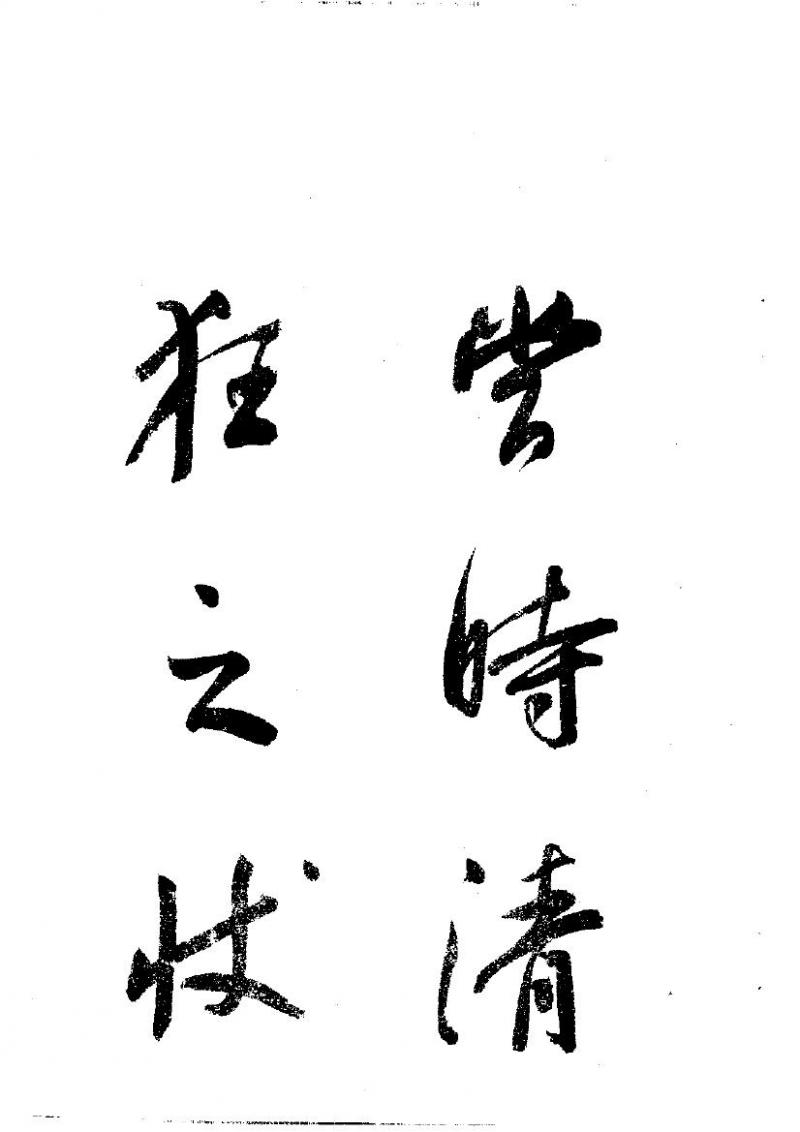 當時清
狂之狀